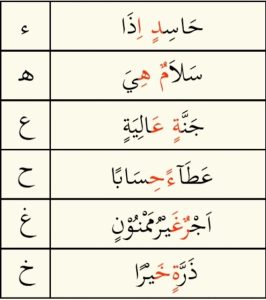 حَاسِدٍ اِذَا ء
سَلاَمٌ هِيَ ه
جَنَّةٍ عَالِيَةٍ ع
عَطَآءً حِسَابًا ح
اَجْرٌ غَيْرُ مَمْنُوْنٍ غ
ذَرَّةٍ خَيْرًا خ